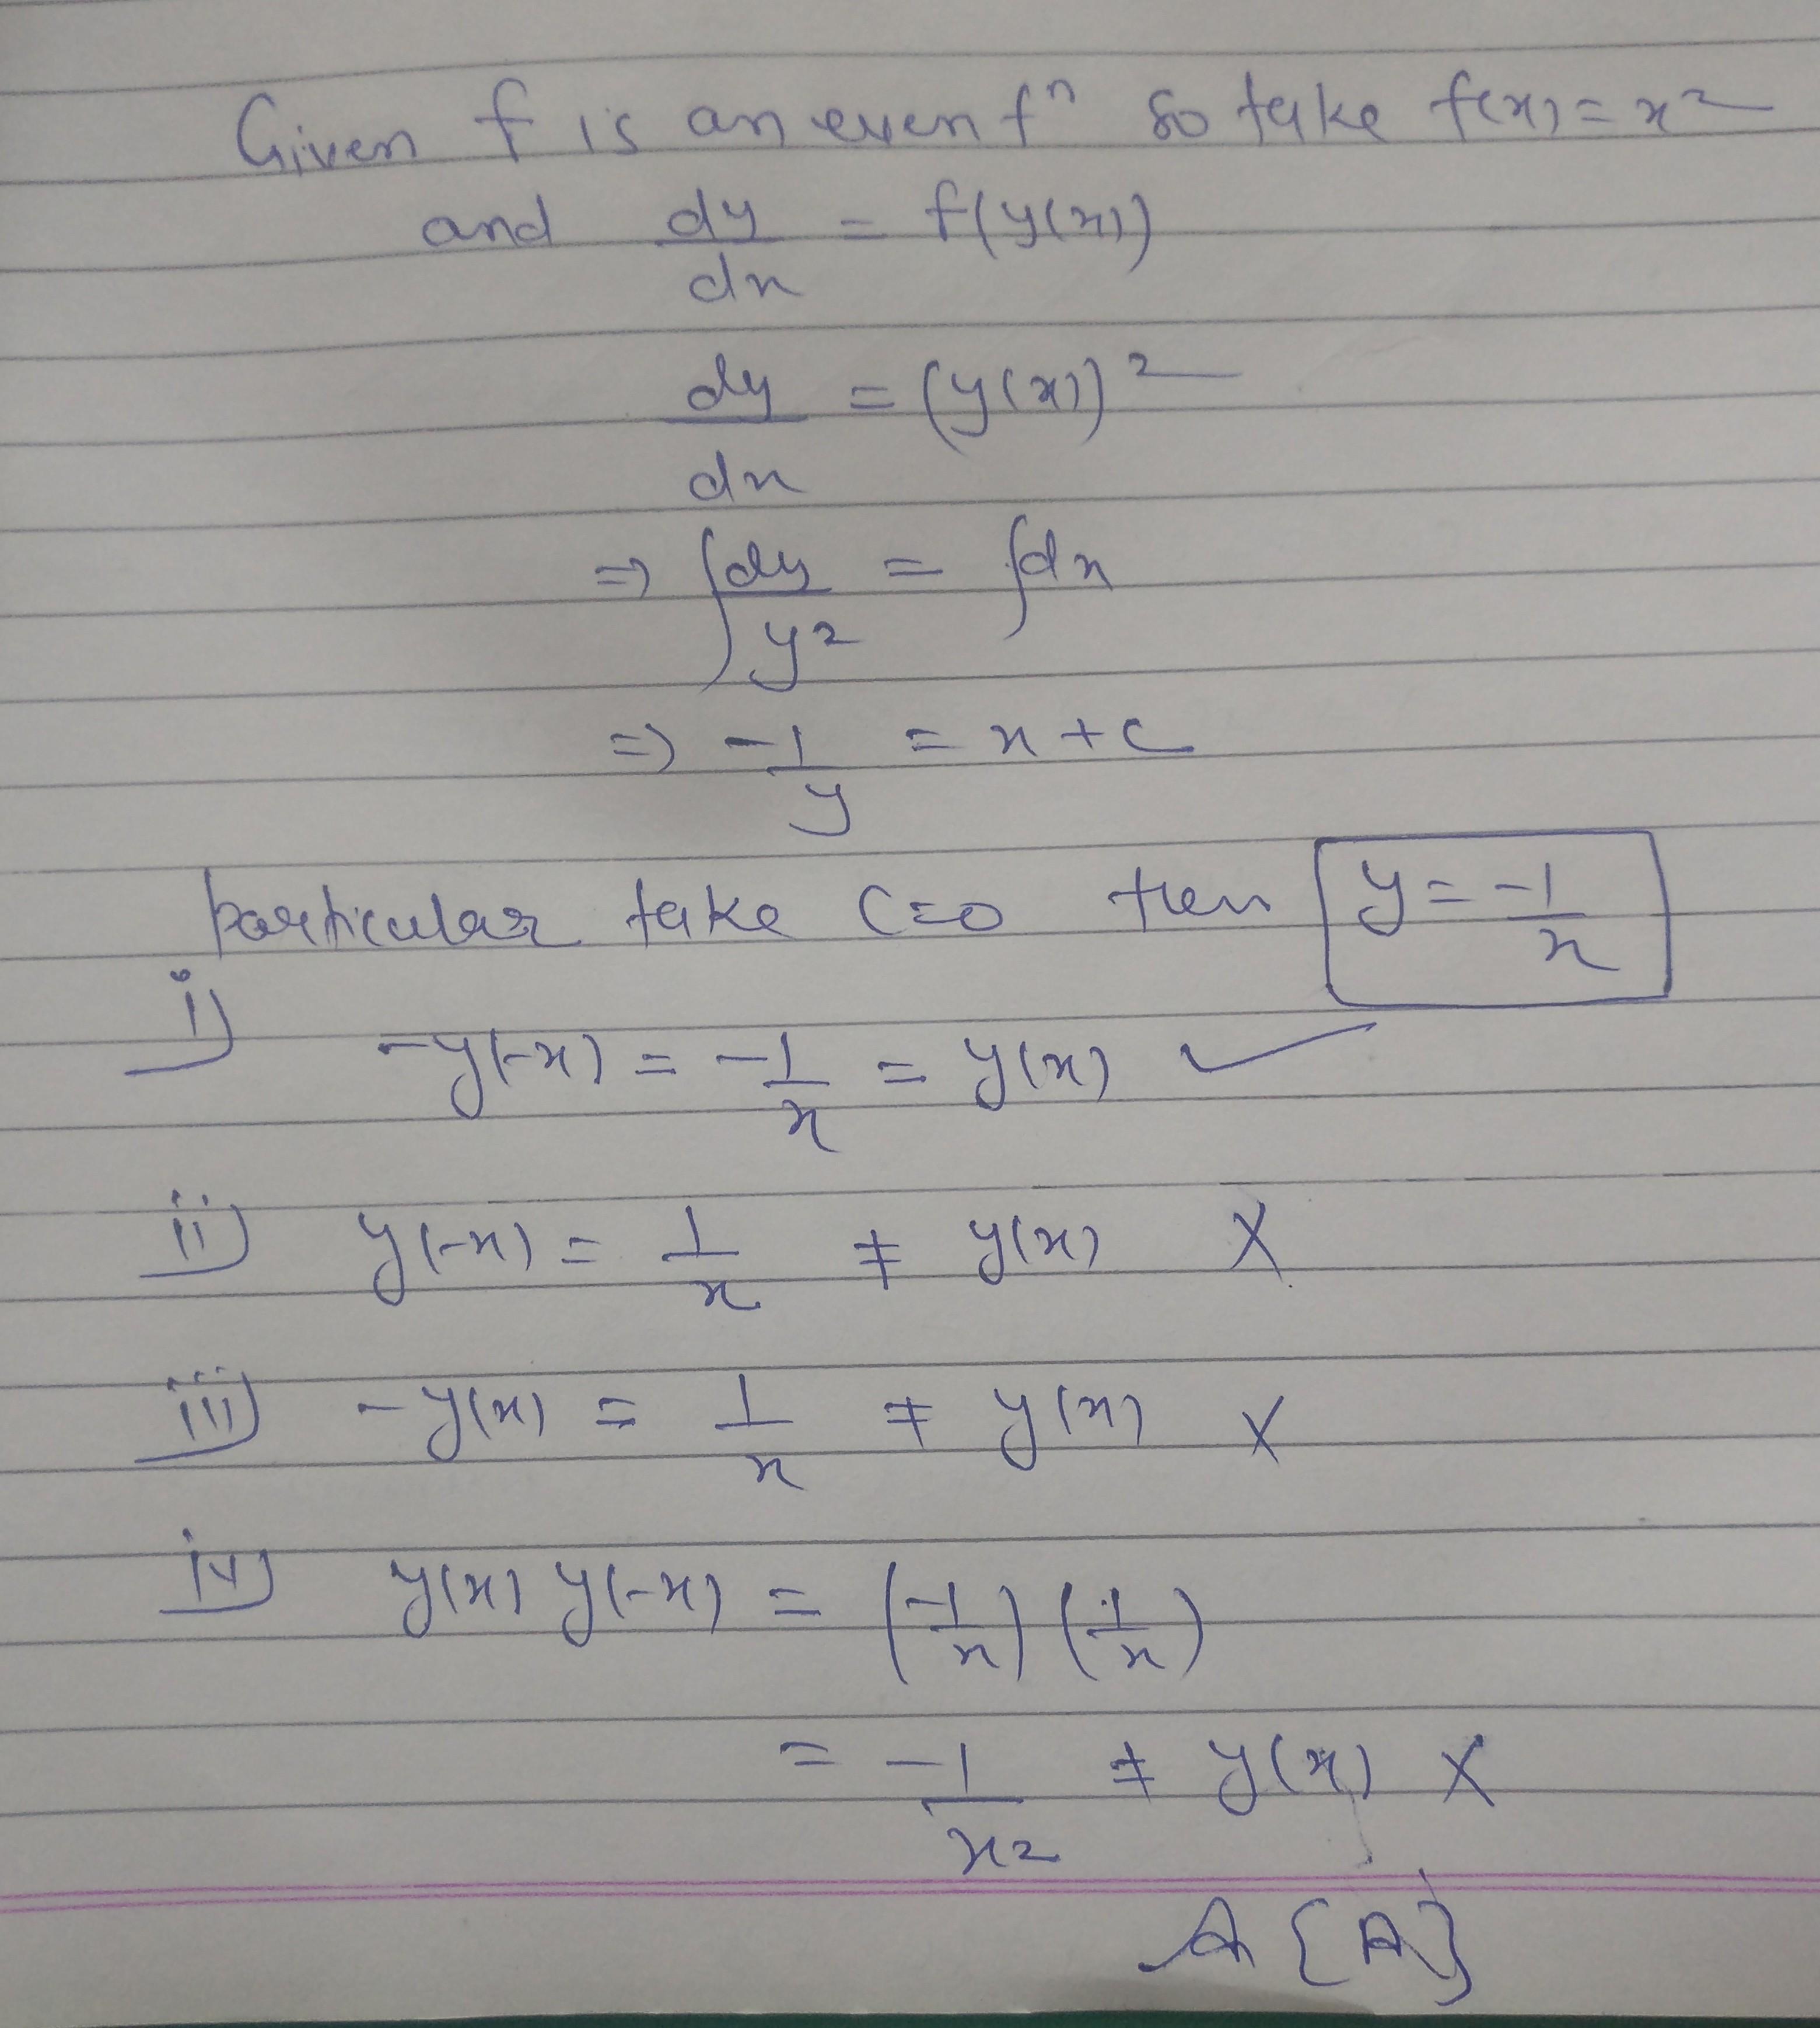 Given f is an even fⁿ so take f(x) = x²
and dy/dx = f(y(x))
dy/dx = (y(x))²
⇒ ∫dy/y² = ∫dx
⇒ -1/y = x + c
particular take C=0 then y = -1/x
i) -y(-x) = -1/x = y(x) ✓
ii) y(-x) = 1/x ≠ y(x) X
iii) -y(x) = 1/x ≠ y(x) X
iv) y(x) y(-x) = (-1/x) (1/x)
= -1/x² ≠ y(x) X
A {A}